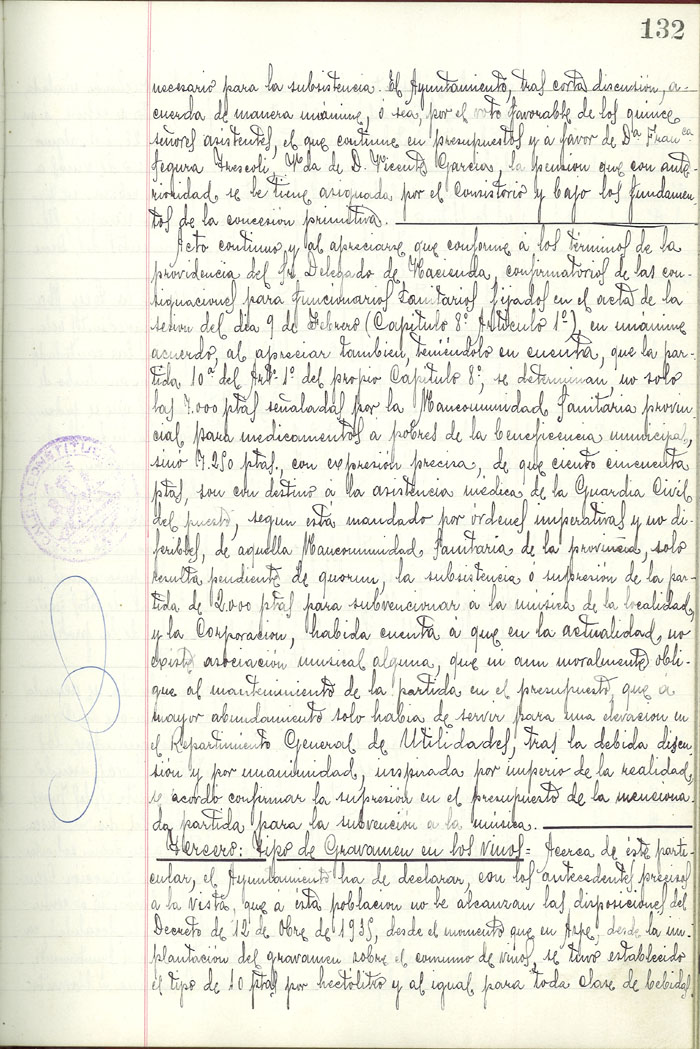 132
necesario para la subsistencia. El Ayuntamiento, tras corta discusión, a-
cuerda de manera unánime, ó sea, por el voto favorable de los quince
señores asistentes, el que continue en presupuestos y á favor de Dª Franca
Segura Irescoli, Vda de D. Vicente Garcia, la pension que con ante-
rioridad se le tiene asignada por el Consistorio y bajo los fundamen-
tos de la concesion primitiva.
Acto continuo y al apreciarse que conforme á los términos de la
providencia del Sr. Delegado de Hacienda, confirmatorios de las con-
signaciones para funcionarios sanitarios fijados en el acta de la
sesion del dia 9 de Febrero (Capitulo 8º Articulo 1º), en unánime
acuerdo, al apreciar tambien, teniéndolo en cuenta, que la par-
tida 10ª del Artº 1º del propio Capitulo 8º, se determinan no solo
las 7.000 ptas señaladas por la Mancomunidad Sanitaria provin-
cial para medicamentos a pobres de la beneficencia municipal,
sinó 7.250 ptas., con expresión precisa, de que ciento cincuenta
ptas, son con destino á la asistencia médica de la Guardia Civil
del puesto, segun está mandado por órdenes imperativas y no di-
feribles, de aquella Mancomunidad Sanitaria de la provincia, solo
resulta pendiente de quorum, la subsistencia ó supresion de la par-
tida de 2.000 ptas para subvencionar a la música de la localidad,
y la Corporacion, habida cuenta á que en la actualidad no
existe asociación musical alguna, que ni aun moralmente obli-
gue al mantenimiento de la partida en el presupuesto, que á
mayor abundamiento solo habia de servir para una elevacion en
el Repartimiento General de Utilidades, tras la debida discu-
sión y por unanimidad, inspirada por imperio de la realidad,
se acordó confirmar la supresion en el presupuesto de la menciona-
da partida para la subvención a la música.
Tercero: Tipo de Gravamen en los vinos = Acerca de éste parti-
cular, el Ayuntamiento ha de declarar, con los antecedentes precisos
a la vista, que a ésta poblacion no le alcanzan las disposiciones del
Decreto de 12 de Obre de 1935, desde el momento que en Aspe, desde la im-
plantación del gravamen sobre el consumo de vinos, se tuvo establecido
el tipo de 10 ptas por hectolitro y al igual para toda clase de bebidas